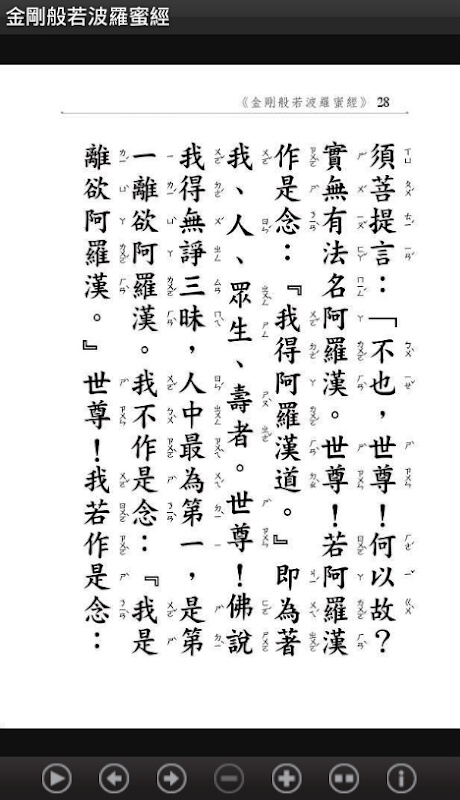 金剛般若波羅蜜經
《金剛般若波羅蜜經》 28
須菩提言：「不也，世尊！何以故？
實無有法名阿羅漢。世尊！若阿羅漢
作是念：『我得阿羅漢道。』即為著
我、人、眾生、壽者。世尊！佛說
我得無諍三昧，人中最為第一，是第
一離欲阿羅漢。我不作是念：『我是
離欲阿羅漢。』世尊！我若作是念：